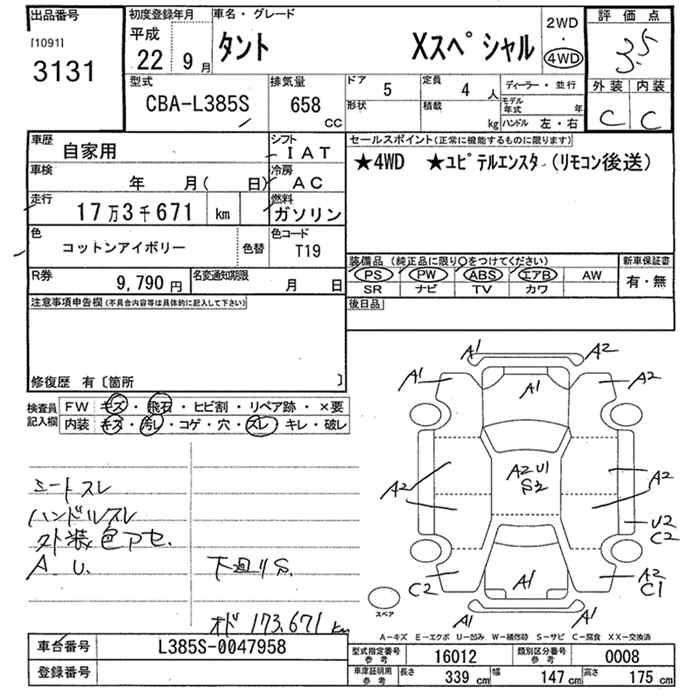 出品番号
[1091]
3131
初度登録年月
平成
22 9月
車名・グレード
タント Xスペシャル
2WD
・
4WD
評価点
3.5
外装 内装
C C
型式
CBA-L385S
排気量
658 cc
ドア 5
形状
定員 4 人
積載 kg
ディーラー・並行
モデル年式 年
ハンドル 左・右
車歴
自家用
シフト
IAT
車検
年 月( 日)
冷房
AC
走行
17万3千671 km
燃料
ガソリン
色
コットンアイボリー
色替
色コード
T19
R券
9,790円
名変通知期限
月 日
セールスポイント(正常に機能するものに限ります)
★4WD ★ユピテルエンスタ(リモコン後送)
装備品(純正品に限り○をつけてください)
PS PW ABS エアB AW
SR ナビ TV カワ
新車保証書
有・無
後日品
注意事項申告欄(不具合内容等は具体的に記入して下さい)
修復歴 有〔箇所 〕
検査員記入欄
FW キズ・飛石・ヒビ割・リペア跡・×要
内装 キズ・汚レ・コゲ・穴・スレ・キレ・破レ
シートスレ
ハンドルスレ
外装色アセ.
A.U.
下廻りS.
オド 173,671 km
A1 A2
A1 A1 A2
A2 A2U1 S2 A2
U2
C2
C2 A1 A2
C1
A1 A1
スペア
A-キズ E-エクボ U-凹み W-補修跡 S-サビ C-腐食 XX-交換済
車台番号
L385S-0047958
登録番号
型式指定番号 参考
16012
類別区分番号 参考
0008
車庫証明用 参考
長さ 339cm 幅 147cm 高さ 175cm